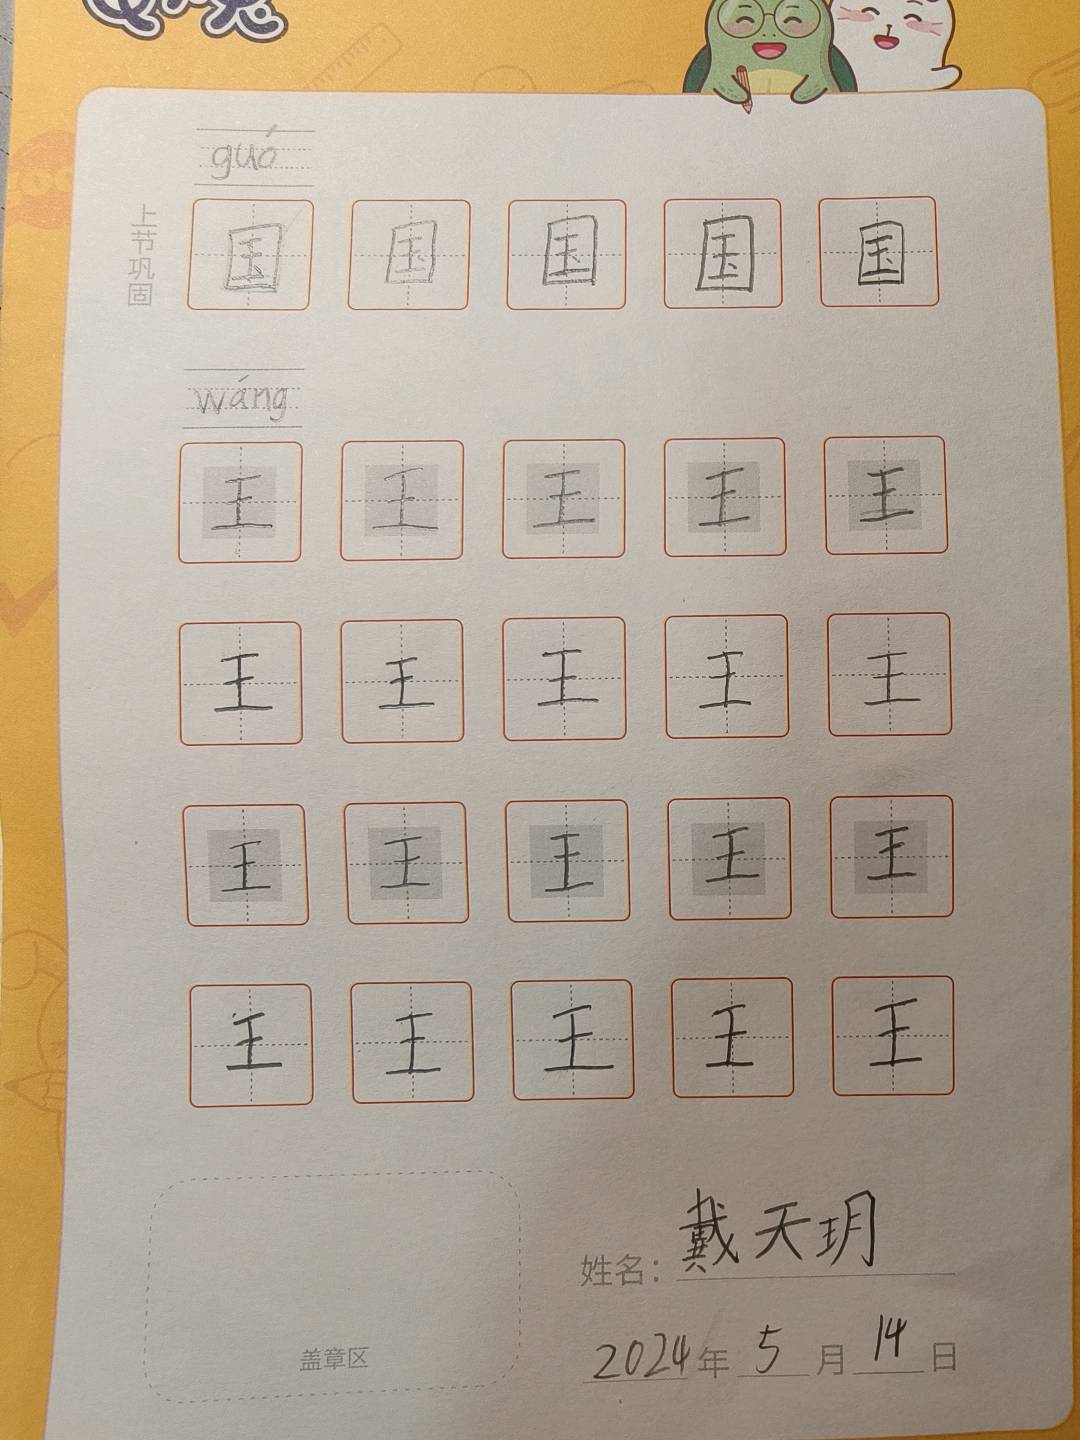 guó
上节巩固
国 国 国 国 国
wáng
王 王 王 王 王
王 王 王 王 王
王 王 王 王 王
王 王 王 王 王
姓名：戴天玥
盖章区
2024年5月14日